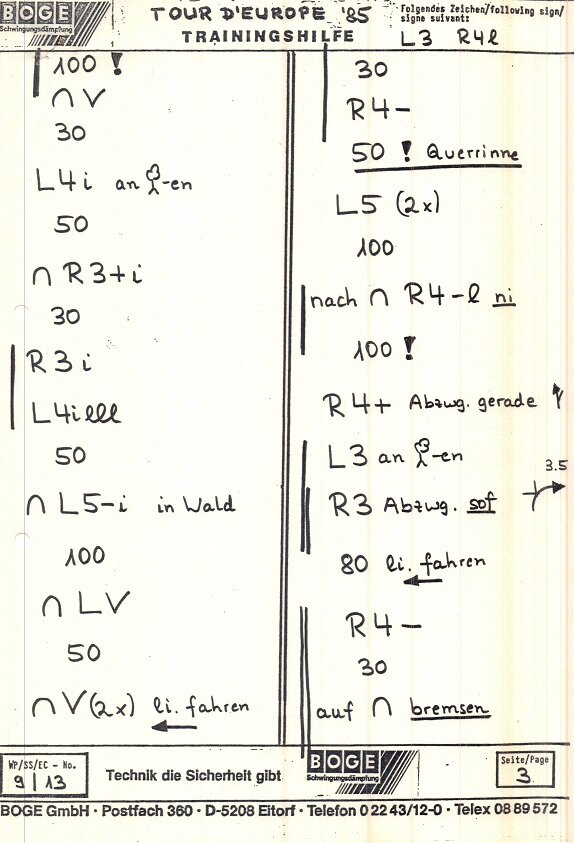 BOGE
Schwingungsdämpfung
TOUR D'EUROPE '85
TRAININGSHILFE
Folgendes Zeichen/following sign/
signe suivant:
L3 R4l
100 !
∩ V
30
L4i an -en
50
∩ R3+i
30
R3i
L4illl
50
∩ L5-i in Wald
100
∩ LV
50
∩ V(2x) li. fahren
30
R4-
50 ! Querrinne
L5 (2x)
100
nach ∩ R4-l ni
100 !
R4+ Abzwg. gerade
L3 an -en
R3 Abzwg. sof
3.5
80 li. fahren
R4-
30
auf ∩ bremsen
WP/SS/EC - No.
9 | 13
Technik die Sicherheit gibt
BOGE
Schwingungsdämpfung
Seite/Page
3
BOGE GmbH · Postfach 360 · D-5208 Eitorf · Telefon 0 22 43/12-0 · Telex 08 89 572